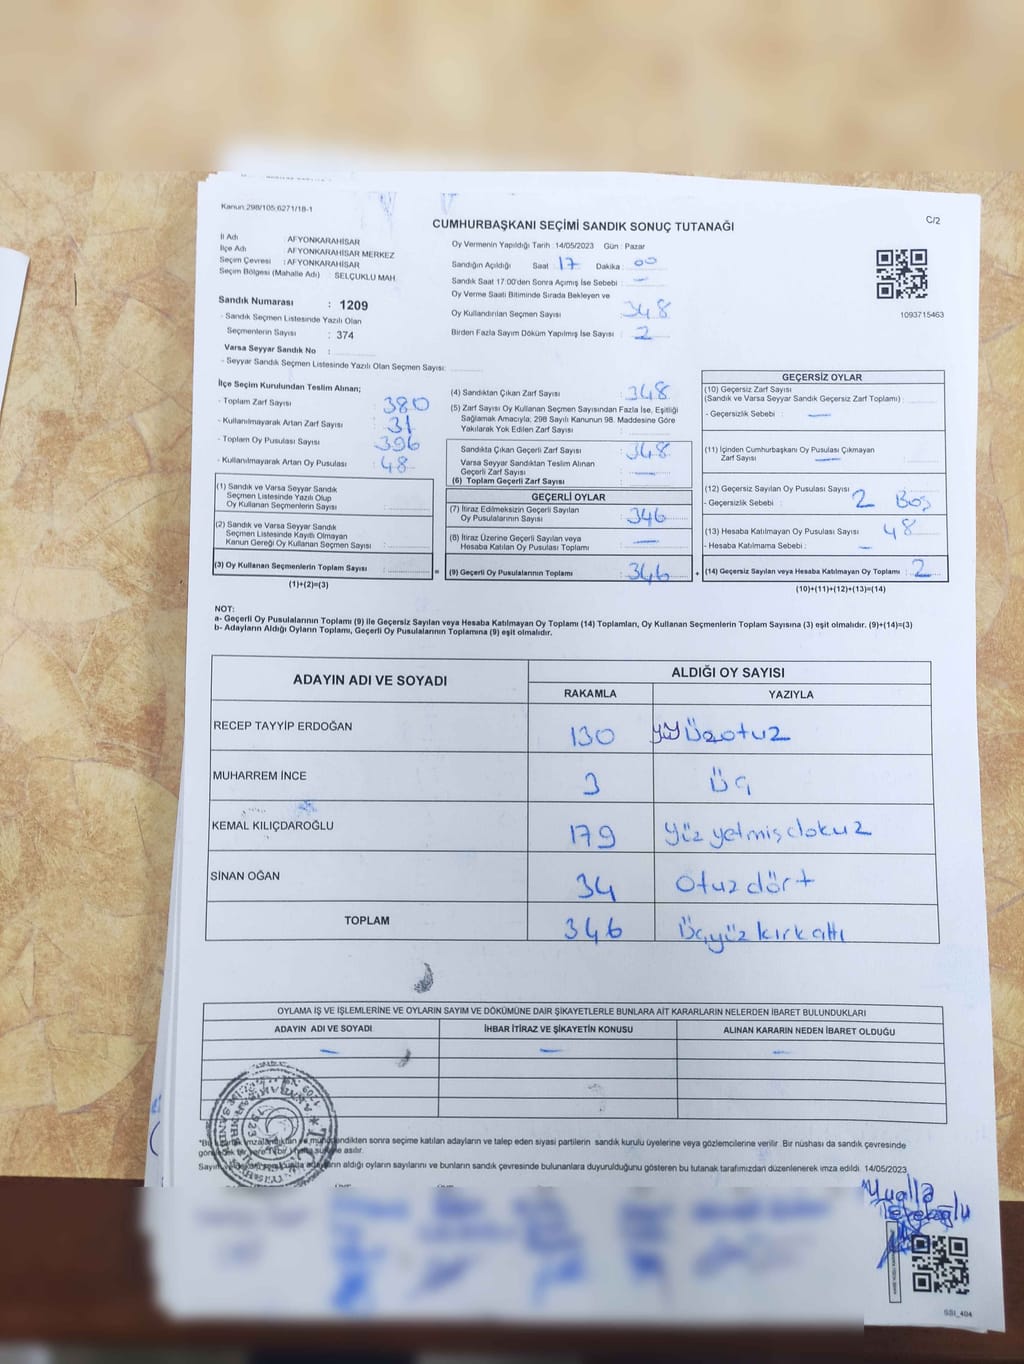 Kanun:298/105;6271/18-1
C/2
CUMHURBAŞKANI SEÇİMİ SANDIK SONUÇ TUTANAĞI
İl Adı : AFYONKARAHİSAR
İlçe Adı : AFYONKARAHİSAR MERKEZ
Seçim Çevresi : AFYONKARAHİSAR
Seçim Bölgesi (Mahalle Adı) : SELÇUKLU MAH.
Sandık Numarası : 1209
- Sandık Seçmen Listesinde Yazılı Olan
Seçmenlerin Sayısı : 374
Varsa Seyyar Sandık No :
- Seyyar Sandık Seçmen Listesinde Yazılı Olan Seçmen Sayısı:
Oy Vermenin Yapıldığı Tarih :14/05/2023 Gün : Pazar
Sandığın Açıldığı Saat : 17 Dakika : 00
Sandık Saat 17:00'den Sonra Açımış İse Sebebi : —
Oy Verme Saati Bitiminde Sırada Bekleyen ve
Oy Kullandırılan Seçmen Sayısı : 348
Birden Fazla Sayım Döküm Yapılmış İse Sayısı : 2
1093715463
İlçe Seçim Kurulundan Teslim Alınan;
- Toplam Zarf Sayısı : 380
- Kullanılmayarak Artan Zarf Sayısı : 31
- Toplam Oy Pusulası Sayısı : 396
- Kullanılmayarak Artan Oy Pusulası : 48
(1) Sandık ve Varsa Seyyar Sandık
Seçmen Listesinde Yazılı Olup
Oy Kullanan Seçmen Sayısı :
(2) Sandık ve Varsa Seyyar Sandık
Seçmen Listesinde Kayıtlı Olmayan
Kanun Gereği Oy Kullanan Seçmen Sayısı :
(3) Oy Kullanan Seçmenlerin Toplam Sayısı :
(1)+(2)=(3)
=
(4) Sandıktan Çıkan Zarf Sayısı : 348
(5) Zarf Sayısı Oy Kullanan Seçmen Sayısından Fazla İse, Eşitliği
Sağlamak Amacıyla; 298 Sayılı Kanunun 98. Maddesine Göre
Yakılarak Yok Edilen Zarf Sayısı :
Sandıkta Çıkan Geçerli Zarf Sayısı : 348
Varsa Seyyar Sandıktan Teslim Alınan
Geçerli Zarf Sayısı : —
(6) Toplam Geçerli Zarf Sayısı :
GEÇERLİ OYLAR
(7) İtiraz Edilmeksizin Geçerli Sayılan
Oy Pusulalarının Sayısı : 346
(8) İtiraz Üzerine Geçerli Sayılan veya
Hesaba Katılan Oy Pusulası Toplamı : —
(9) Geçerli Oy Pusulalarının Toplamı : 346
+
GEÇERSİZ OYLAR
(10) Geçersiz Zarf Sayısı
(Sandık ve Varsa Seyyar Sandık Geçersiz Zarf Toplamı) :
- Geçersizlik Sebebi : —
(11) İçinden Cumhurbaşkanı Oy Pusulası Çıkmayan
Zarf Sayısı : —
(12) Geçersiz Sayılan Oy Pusulası Sayısı : 2 Boş
- Geçersizlik Sebebi :
(13) Hesaba Katılmayan Oy Pusulası Sayısı : 48
- Hesaba Katılmama Sebebi : —
(14) Geçersiz Sayılan veya Hesaba Katılmayan Oy Toplamı : 2
(10)+(11)+(12)+(13)=(14)
NOT:
a- Geçerli Oy Pusulalarının Toplamı (9) ile Geçersiz Sayılan veya Hesaba Katılmayan Oy Toplamı (14) Toplamları, Oy Kullanan Seçmenlerin Toplam Sayısına (3) eşit olmalıdır. (9)+(14)=(3)
b- Adayların Aldığı Oyların Toplamı, Geçerli Oy Pusulalarının Toplamına (9) eşit olmalıdır.
ADAYIN ADI VE SOYADI
ALDIĞI OY SAYISI
RAKAMLA YAZIYLA
RECEP TAYYİP ERDOĞAN 130 Üzotuz
MUHARREM İNCE 3 Üç
KEMAL KILIÇDAROĞLU 179 Yüzyetmişdokuz
SİNAN OĞAN 34 Otuzdört
TOPLAM 346 Üçyüzkırkaltı
OYLAMA İŞ VE İŞLEMLERİNE VE OYLARIN SAYIM VE DÖKÜMÜNE DAİR ŞİKAYETLERLE BUNLARA AİT KARARLARIN NELERDEN İBARET BULUNDUKLARI
ADAYIN ADI VE SOYADI İHBAR İTİRAZ VE ŞİKAYETİN KONUSU ALINAN KARARIN NEDEN İBARET OLDUĞU
— — —
dikten sonra seçime katılan adayların ve talep eden siyasi partilerin sandık kurulu üyelerine veya gözlemcilerine verilir. Bir nüshası da sandık çevresinde
asılır.
aldığı oyların sayılarını ve bunların sandık çevresinde bulunanlara duyurulduğunu gösteren bu tutanak tarafımızdan düzenlenerek imza edildi. 14/05/2023
SSI_404